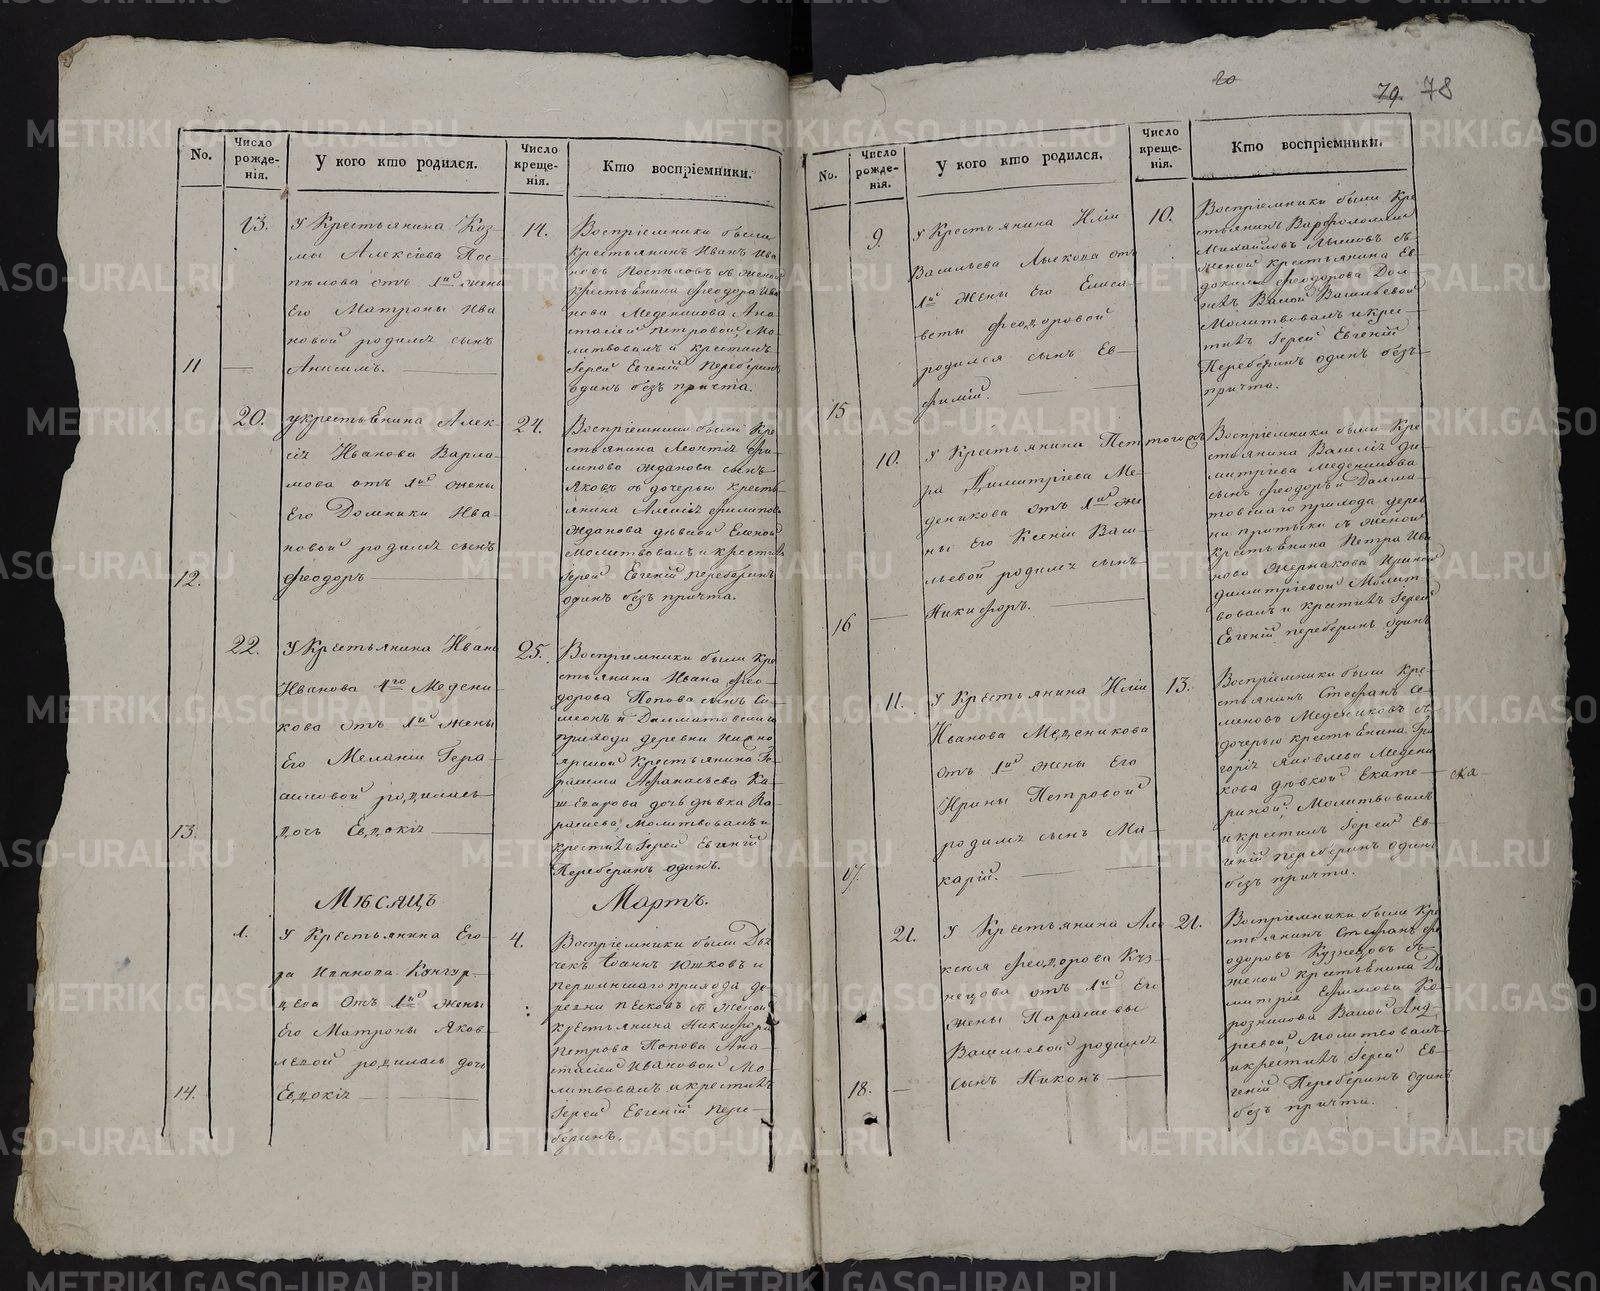 20
79. 78
No.
Число рожде-нія.
У кого кто родился.
Число креще-нія.
Кто воспріемники.
13.
У Крестьянина Коз
мы Алексіева Пос
пѣлова отъ 1й жены
Его Матроны Ива
новой родился сынъ
11
Анисимъ.
14.
Воспріемники были
крестьянинъ Иванъ Ива
новъ Поспѣловъ съ женой
крестьянина Феодора Ива
нова Меденикова Ана
стасіей Петровой Мо
литвовалъ и крестилъ
Іерей Евгеній Переберинъ
одинъ безъ причта.
20.
у крестьянина Алек
сія Иванова Варла
мова отъ 1й жены
Его Домники Ива
новой родился сынъ
12.
Феодоръ
24.
Воспріемники были Кре
стьянина Леонтія Фи
липова Жданова сынъ
Яковъ съ дочерью кресть
янина Алексія Филипова
Жданова дѣвкой Еленой
Молитвовалъ и крестилъ
Іерей Евгеній Переберинъ
одинъ безъ причта.
22.
У Крестьянина Ивана
Иванова 4го Медени
кова отъ 1й жены
Его Меланіи Гера
симовой родилась
13.
дочь Евдокія
25.
Воспріемники были Кре
стьянина Ивана Фео
дорова Попова сынъ Си
меонъ и Далматовскаго
прихода деревни
крестьянина Ге
расима Афанасьева Ка
шкарова дочь дѣвка Па
раскева, Молитвовалъ и
крестилъ Іерей Евгеній
Переберинъ одинъ.
Мѣсяцъ
Мартъ.
1.
У Крестьянина Его
ра Иванова Кунгур
цева отъ 1й жены
Его Матроны Яков
левой родилась дочь
14.
Евдокія
4.
Воспріемники были Дья
чекъ Іоаннъ Юшковъ и
Першинскаго прихода де
ревни Песковъ съ женой
крестьянина Никифора
Петрова Попова Ана
стасіей Ивановой Мо
литвовалъ и крестилъ
Іерей Евгеній Пере
беринъ.
No.
Число рожде-нія.
У кого кто родился.
Число креще-нія.
Кто воспріемники.
9.
У Крестьянина Иліи
Васильева Лыскова отъ
1й жены Его Елиса
веты Феодоровой
родился сынъ Ев
15
фимій.
10.
Воспріемники были Кре
стьянинъ Варфоломей
Михайловъ Лысковъ съ
женой крестьянина Ев
докима Феодорова Дол
гихъ Вассой Васильевой
Молитвовалъ и крес
тилъ Іерей Евгеній
Переберинъ одинъ безъ
причта.
10.
У Крестьянина Пет
ра Димитріева Ме
деникова отъ 1й же
ны Его Ксеніи Васи
льевой родился сынъ
16
Никифоръ.
тогожъ
Воспріемники были Кре
стьянина Василія Ди
митріева Меденикова
сынъ Феодоръ и Далма
товскаго прихода дерев
ни Притыки съ женой
крестьянина Петра Ива
нова Жернакова Ириной
Димитріевой Молит
вовалъ и крестилъ Іерей
Евгеній Переберинъ одинъ
11.
У Крестьянина Иліи
Иванова Меденикова
отъ 1й жены Его
Ирины Петровой
родился сынъ Ма
17.
карій.
13.
Воспріемники были Кре
стьянинъ Стефанъ Се
меновъ Медениковъ съ
дочерью крестьянина Гри
горія Яковлева Медени
кова дѣвкой Екате
риной, Молитвовалъ
и крестилъ Іерей Ев
геній Переберинъ одинъ
безъ причта.
21.
У Крестьянина Але
ксѣя Феодорова Куз
нецова отъ 1й Его
жены Параскевы
Васильевой родился
18.
сынъ Никонъ
21.
Воспріемники были Кре
стьянинъ Стефанъ Фе
одоровъ Кузнецовъ съ
женой крестьянина Ди
митрія Ефимова Ко
розникова Вассой Анд
реевой Молитвовалъ
и крестилъ Іерей Ев
геній Переберинъ одинъ
безъ причта.
METRIKI.GASO-URAL.RU